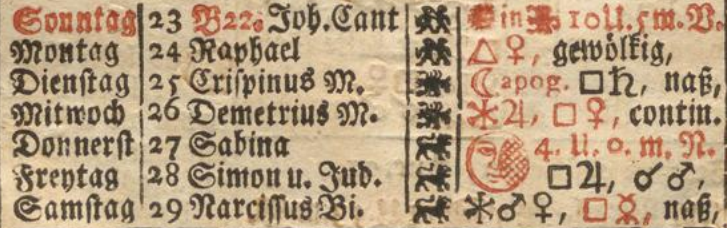 Sonntag 23 B22. Joh. Cant in 10 U. 5 m. V.
Montag 24 Raphael △ ♀, gewölkig,
Dienstag 25 Crispinus M. ☾ apog. □ ♄, naß,
Mitwoch 26 Demetrius M. ⚹ ♃, □ ♀, contin.
Donnerst 27 Sabina 4. U. 0. m. N.
Freytag 28 Simon u. Jud. □ ♃, ☌ ♂,
Samstag 29 Narcissus Bi. ⚹ ♂ ♀, □ ☿, naß,